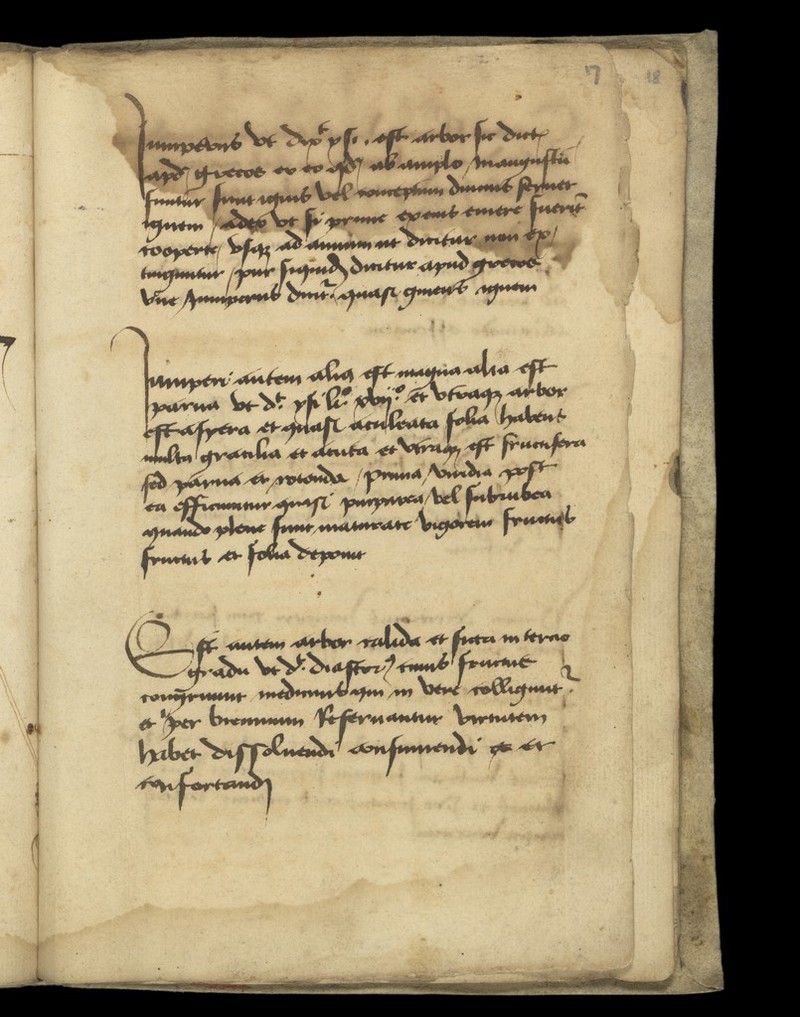 7 18
Iuniperus vt dix ysi. est arbor sic dict
apd grecos eo qd ab amplo in angustu
finitur sicut ignis vel conceptum diucius seruet
ignem adeo vt si prune ex eius cinere fuerit
cooperte vsq ad annum vt dicitur non ex
tinguntur pir siquid dicitur apud grecos
vn Iuniperus dicit quasi gnens ignem
Iuniperi autem alia est magna alia est
parua vt d ysi li xvij et vtraq arbor
est aspera et quasi aculeata folia habent
multa gracilia et acuta et vtraq est fructifera
sed parua et rotonda prima viridia post
ea efficiuntur quasi purpurea vel subrubea
quando plene sunt maturate vigorem fructus
fructus et folia deponit
Est autem arbor calida et sicca in tercio
gradu vt d diascor cuius fructus
congruunt medicinis qui in vere colligunt
et per biennium Reseruantur virtutem
habet dissoluendi consumendi et
confortandi